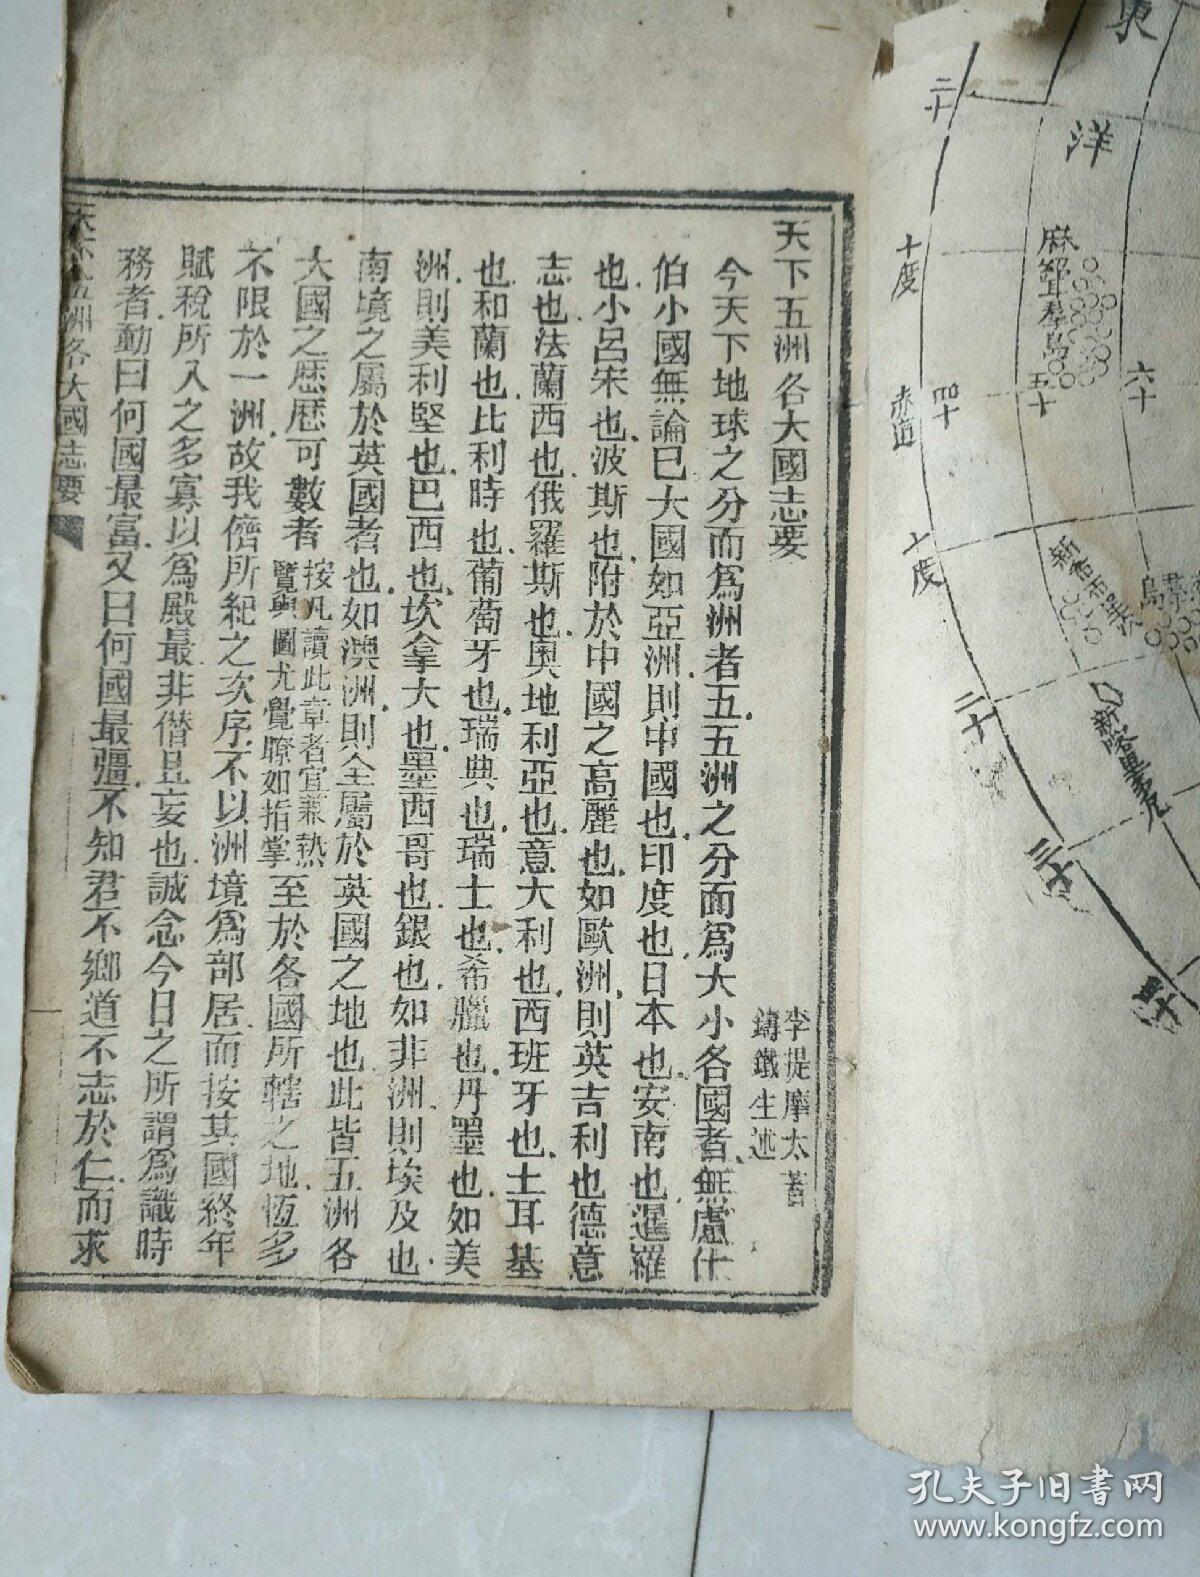 天下五洲各大國志要
李提摩太著
鑄鐵生述
今天下地球之分而爲洲者五五洲之分而爲大小各國者無慮什
伯小國無論已大國如亞洲則中國也印度也日本也安南也暹羅
也小呂宋也波斯也附於中國之高麗也如歐洲則英吉利也德意
志也法蘭西也俄羅斯也奧地利亞也意大利也西班牙也土耳基
也和蘭也比利時也葡萄牙也瑞典也瑞士也希臘也丹墨也如美
洲則美利堅也巴西也坎拿大也墨西哥也銀也如非洲則埃及也
南境之屬於英國者也如澳洲則全屬於英國之地也此皆五洲各
大國之歷歷可數者按凡讀此章者宜兼熱覽輿圖尤覺瞭如指掌至於各國所轄之地恆多
不限於一洲故我儕所紀之次序不以洲境爲部居而按其國終年
賦稅所入之多寡以爲殿最非僭且妄也誠念今日之所謂爲識時
務者動曰何國最富又曰何國最彊不知君不鄉道不志於仁而求
天下五洲各大國志要
東
洋
二十
十度
赤道
十度
二十
三十
四十
四十
五十
六十
麻
羣島
新
羣島
新